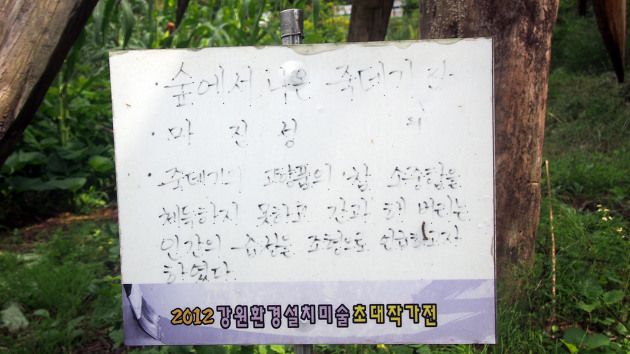 · 숲에서 나온 죽데기
· 마 진 성
· 죽데기의 참 소중함을
체득하지 못하고 간과 해 버리는
인간의 습성을 조형으로
하였다.
2012 강원환경설치미술초대작가전